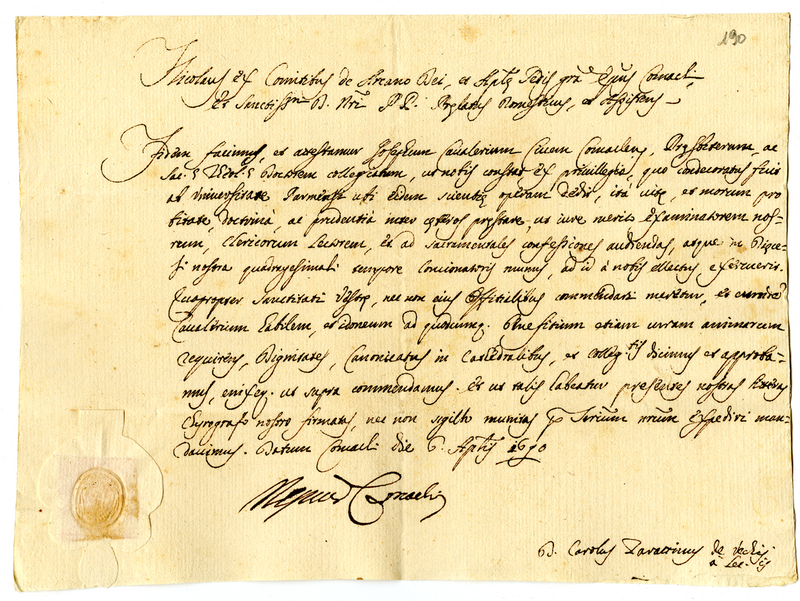 190
Nicolaus ex Comitibus de Arcano Dei, et Aplicę Sedis gra Epus Comacli,
et Sanctissmi D. Nri P.P. Prelatus Domesticus, et Assistens
Fidem facimus, et attestamur Josephum Cavalerium Civem Comaclen, Presbiterum, ac
collegiatum, ut nobis constat ex privilegio, quo condecoratus fuit
ab Universitate Parmensi ubi eidem scientię operam dedit, ita vitę, et morum pro
bitate, doctrina, ac prudentia inter cęteros pręstare, ut iure merito examinatorem nos-
trum, Clericorum Lectorem, et ad sacramentales confessiones audiendas, atque in Dięce-
si nostra quadragesimali tempore Concionatoris munus, ad id à nobis ellectus exercuerit.
Quapropter Sanctitati Vestrę, nec non eius Offitialibus commendari meretur, et
Cavalerium habilem, et idoneum ad quodcumq. Benefitium etiam curam animarum
requirens, Dignitates, Canonicatus in Cathedralibus, et Collegtis dicimus et approba-
mus, enixeq. ut supra commendamus. Et ut talis habeatur presentes nostras litteras
Chyrografo nostro firmatas, nec non sigillo munitas expediri man-
davimus. Datum Comacli die 6. Aplis 1690
Comacli
D. Carolus